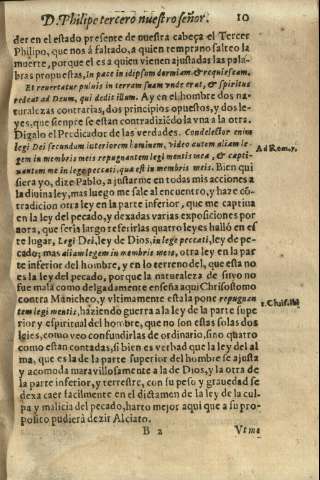 D. Philipe tercero nuestro señor. 10
der en el estado presente de nuestra cabeça el Tercer
Philipo, que nos á faltado, a quien temprano salteo la
muerte, porque el es a quien vienen ajustadas las pala-
bras propuestas, in pace in idipsum dormiam & requiescam,
Et revertatur puluis in terram suam vnde erat, & spiritus
redeat ad Deum, qui dedit illum. Ay en el hombre dos na-
turalezas contrarias, dos principios opuestos, y dos le-
yes, que siempre se estan contradiziẽdo la vna a la otra.
Digalo el Predicador de las verdades. Condelector enim
legi Dei secundum interiorem hominem, video autem aliam le-
gem in membris meis repugnantem legi mentis meæ, & capti-
uantem me in lege peccati, quæ est in membris meis. Bien qui
siera yo, dize Pablo, ajustarme en todas mis acciones a
la diuina ley, mas luego me sale al encuentro, y haze cõ-
tradicion otra ley en la parte inferior, que me captiua
en la ley del pecado, y dexadas varias exposiciones por
aora, que seria largo referirlas quatro leyes halló en es
te lugar, Legi Dei, ley de Dios, in lege peccati, ley de pe-
cado; mas aliam legem in membris meis, otra ley en la par
te inferior del hombre, y en lo terreno del, que esta no
es la ley del pecado, porque la naturaleza de suyo no
fue mala como delgadamente enseña aqui Chrisostomo
contra Manicheo, y vltimamente esta la pone repugnan
tem legi mentis, haziendo guerra a la ley de la parte supe
rior y espiritual del hombre, que no son estas solas dos
leies, como veo confundirlas de ordinario, sino quatro
como estan contadas, si bien es verdad que la ley del al
ma, que es la de la parte superior del hombre se ajusta
y acomoda maravillosamente a la de Dios, y la otra de
la parte inferior, y terrestre, con su peso y grauedad se
dexa caer facilmente en el dictamen de la ley de la cul-
pa y malicia del pecado, harto mejor aqui que a su pro-
posito pudierá dezir Alciato.
B 2 Vtma
Ad Rom. 7.